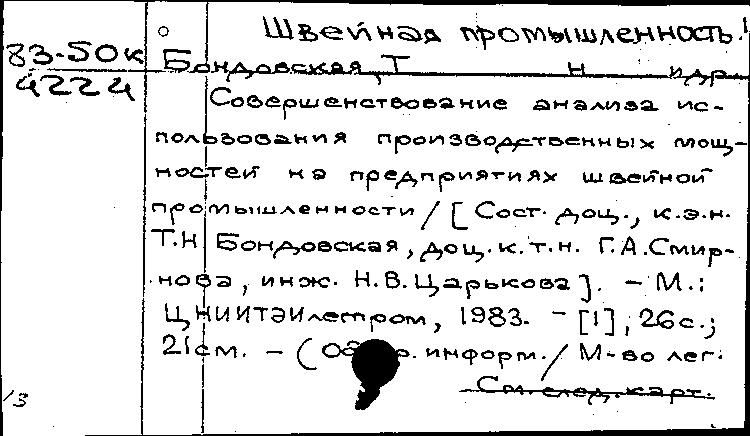 Швейная промышленность.
83-50к Бондовская, Т н и др.
4224
Совершенствование анализа ис-
пользования производственных мощ-
ностей на предприятиях швейной
промышленности / [Сост. доц., к.э.н.
Т.Н Бондовская, доц. к.т.н. Г.А.Смир-
нова, инж. Н.В.Царькова]. - М.:
ЦНИИТЭИлегпром, 1983. - [1], 26с.;
21см. - ( информ. / М-во лег.
См. след. карт.
/3